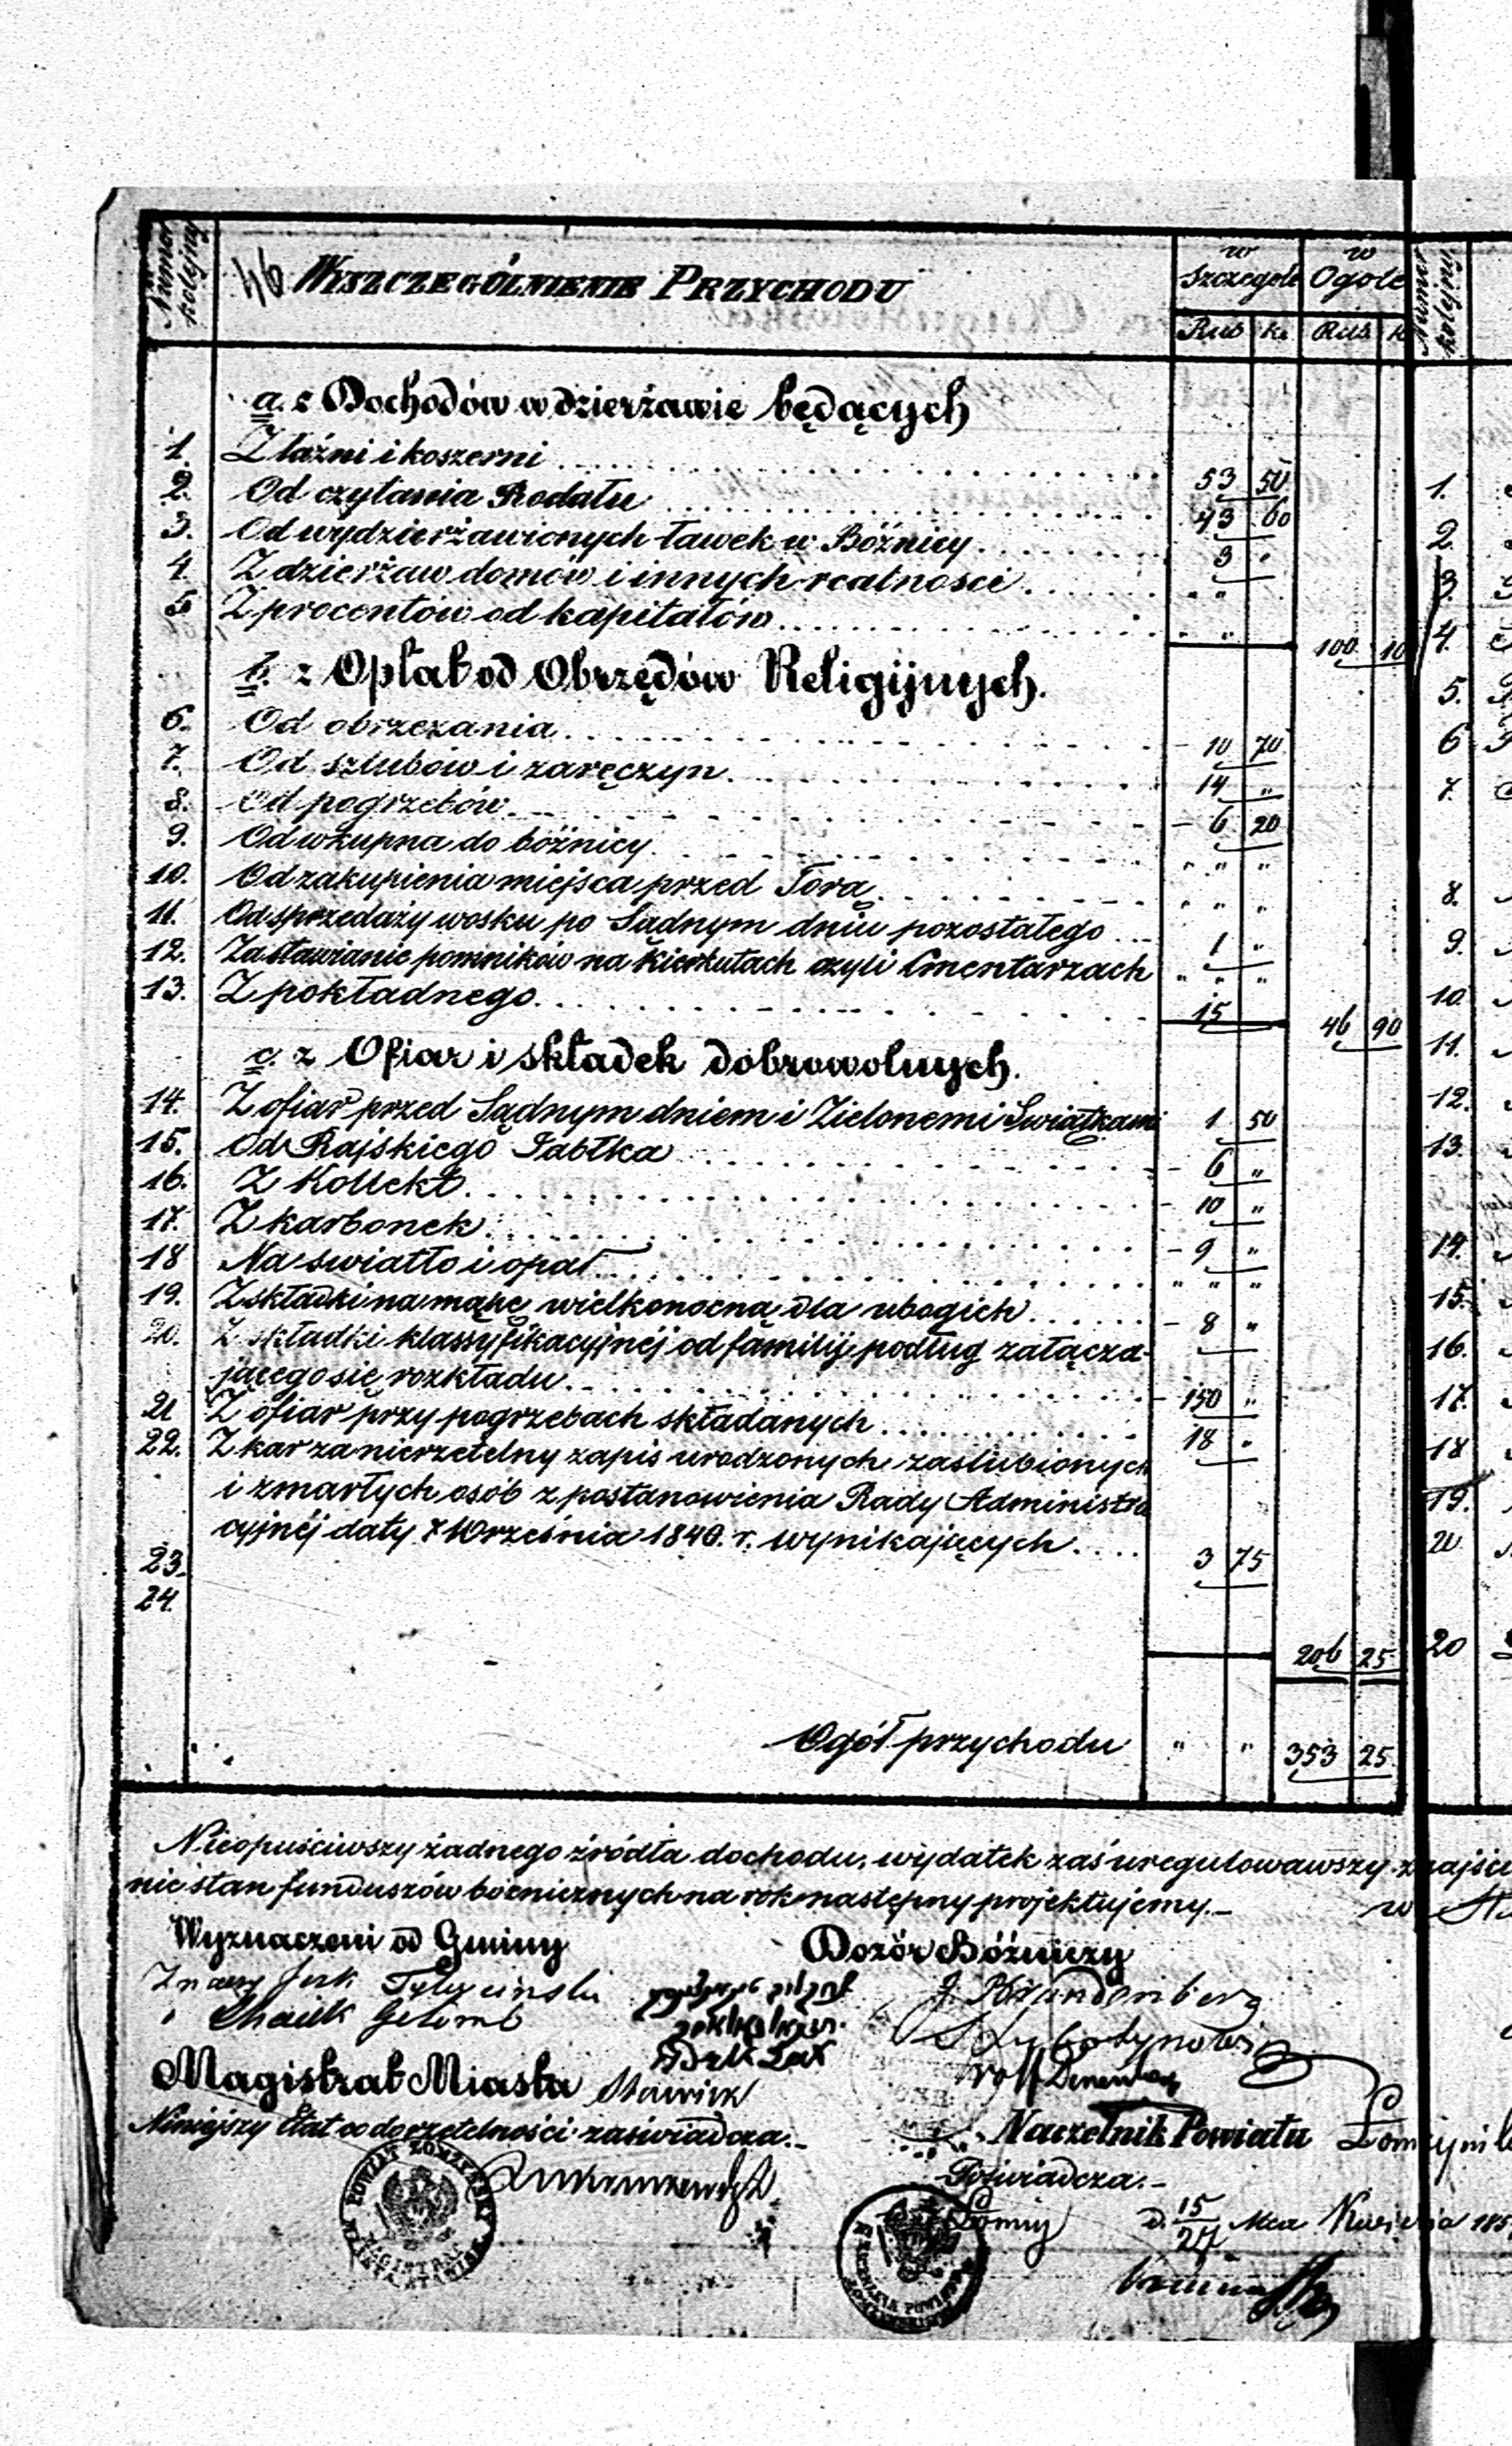 Numer kolejny
46 WYSZCZEGÓLNIENIE PRZYCHODU
w Szczegole
w Ogole
Rub k. Rub k
Numer kolejny
a. z Dochodów w dzierżawie będących
1. Z łaźni i koszerni 53 50
2. Od czytania Rodału 43 60
3. Od wydzierżawionych ławek w Bóżnicy 3 "
4. Z dzierżaw domów i innych realnosci " "
5 Z procentów od kapitałów " "
100 10
b. z Opłat od Obrzędów Religijnych.
6. Od obrzezania 10 70
7. Od szlubów i zaręczyn 14 "
8. Od pogrzebów 6 20
9. Od wkupna do bóżnicy " " "
10. Od zakupienia miejsca przed Torą " " "
11. Od sprzedaży wosku po Sądnym dniu pozostałego 1 "
12. Za stawianie pomników na kierkutach czyli Cmentarzach " " "
13. Z pokładnego 15
46 90
c. z Ofiar i składek dobrowolnych.
14. Z ofiar przed Sądnym dniem i Zielonemi Swiątkami 1 50
15. Od Rajskiego Jabłka 6 "
16. Z Kollekt 10 "
17. Z karbonek 9 "
18 Na swiatło i opał " " "
19. Z składki na mącę wielkonocną dla ubogich 8 "
20. Z składki klassyfikacyjnéj od familij podług załącza-
jącego się rozkładu 150 "
21 Z ofiar przy pogrzebach składanych 18 "
22. Z kar za nierzetelny zapis urodzonych zaslubionych
i zmarłych osób z postanowienia Rady Administra
cyjnéj daty 7 Września 1840. r. wynikających 3 75
23.
24.
206 25
Ogół przychodu " " 353 25
1.
2.
3.
4.
5.
6
7.
8.
9.
10.
11.
12.
13.
14.
15.
16.
17.
18
19.
20
Nieopuściwszy żadnego źródła dochodu, wydatek zaś uregulowawszy
nie stan funduszów bóżnicznych na rok następny projektujemy.
Wyznaczeni od Gminy
Dozór Bóżniczy
Magistrat Miasta Stawisk
Niniejszy Etat co do rzetelności zaświadcza.
Naczelnik Powiatu
Poświadcza.
d. 15/27
POWIAT ŁOMŻYŃSKI
MAGISTRAT
MIASTA STAWISK